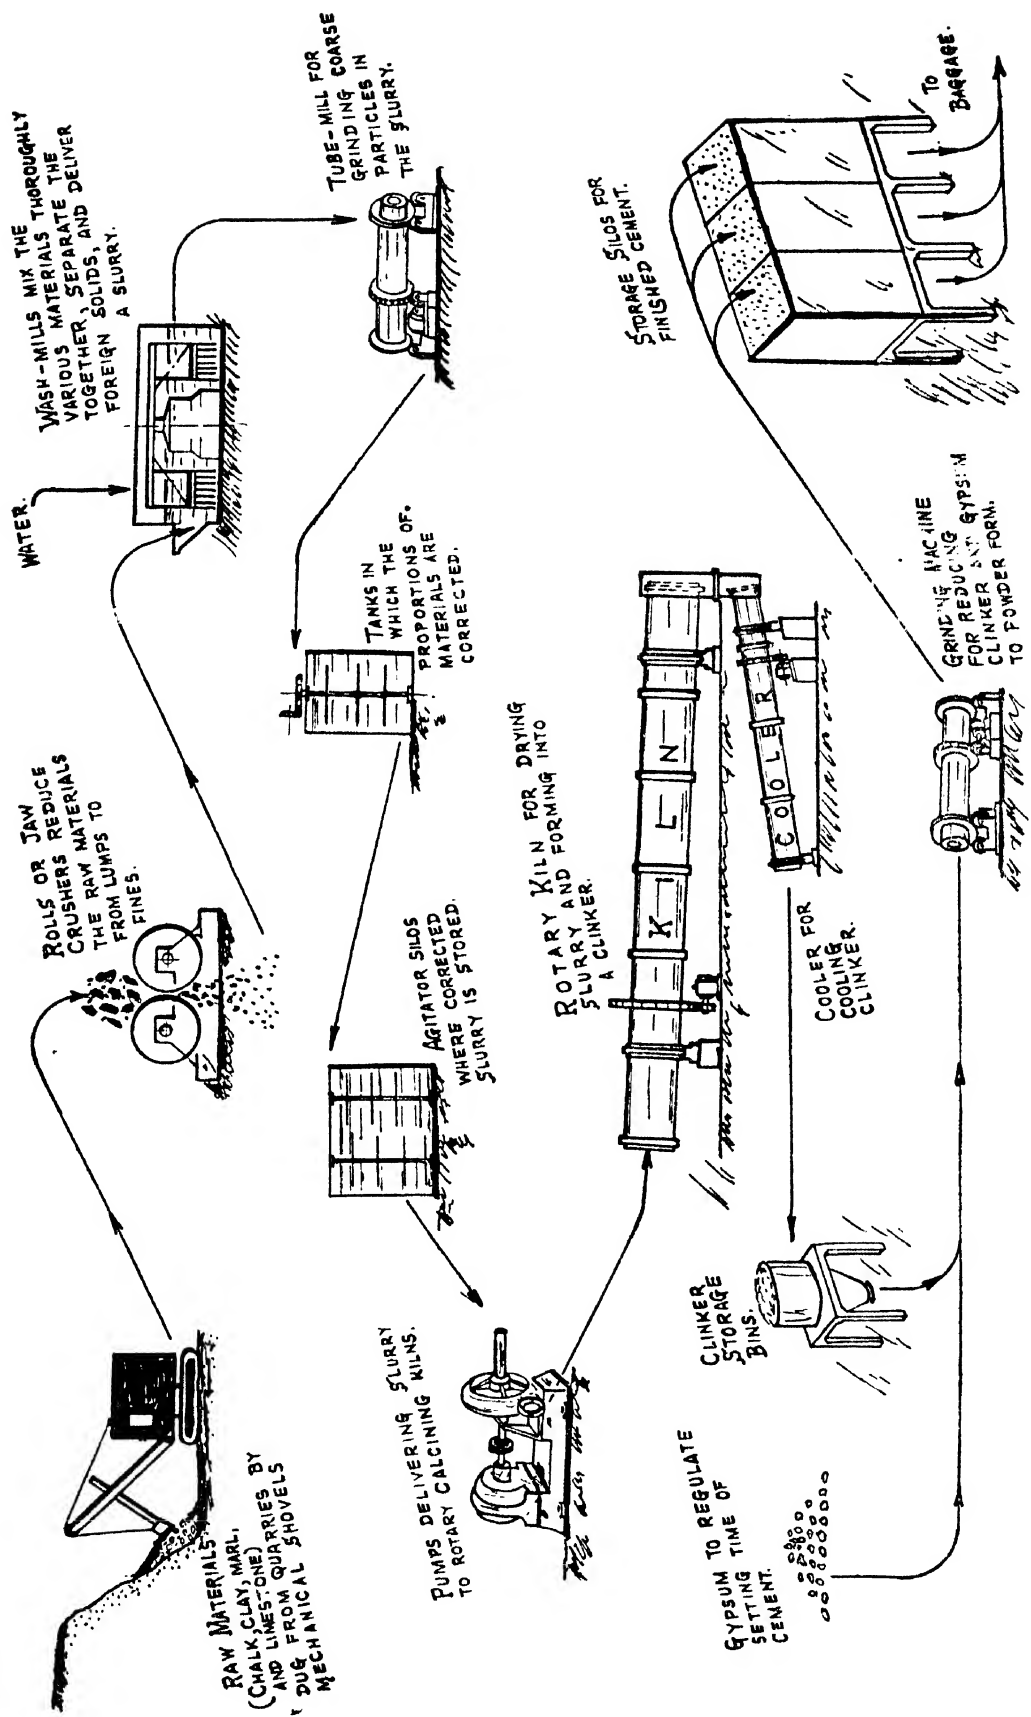 RAW MATERIALS
(CHALK, CLAY, MARL,
AND LIMESTONE)
DUG FROM QUARRIES BY
MECHANICAL SHOVELS
ROLLS OR JAW
CRUSHERS REDUCE
THE RAW MATERIALS
FROM LUMPS TO
FINES.
WATER.
WASH-MILLS MIX THE
VARIOUS MATERIALS THOROUGHLY
TOGETHER, SEPARATE THE
FOREIGN SOLIDS, AND DELIVER
A SLURRY.
TUBE-MILL FOR
GRINDING COARSE
PARTICLES IN
THE SLURRY.
TANKS IN
WHICH THE
PROPORTIONS OF.
MATERIALS ARE
CORRECTED.
AGITATOR SILOS
WHERE CORRECTED
SLURRY IS STORED.
PUMPS DELIVERING SLURRY
TO ROTARY CALCINING KILNS.
ROTARY KILN FOR DRYING
SLURRY AND FORMING INTO
A CLINKER.
KILN
COOLER
COOLER FOR
COOLING
CLINKER.
CLINKER
STORAGE
BINS.
GYPSUM TO REGULATE
SETTING TIME OF
CEMENT.
GRINDING MACHINE
FOR REDUCING
CLINKER AND GYPSUM
TO POWDER FORM.
STORAGE SILOS FOR
FINISHED CEMENT.
TO
BAGGAGE.